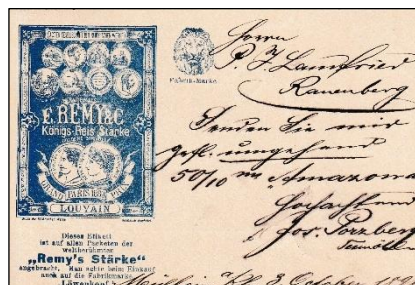 E. REMY & C
Königs-Reis Stärke
GRAND PARIS 18 PRIX
LOUVAIN
Fabrik-Marke
Dieses Etikett
ist auf allen Packeten der
weltberühmten
„Remy's Stärke“
angebracht. Man achte beim Einkauf
auch auf die Fabrikmarke
Löwenkopf
Herrn
P. J. Landfried
Rauenberg
Senden Sie mir
gefl. umgehend
50/10 m Amazona
Hochachtend
Jos. Porzberg
3 October 189